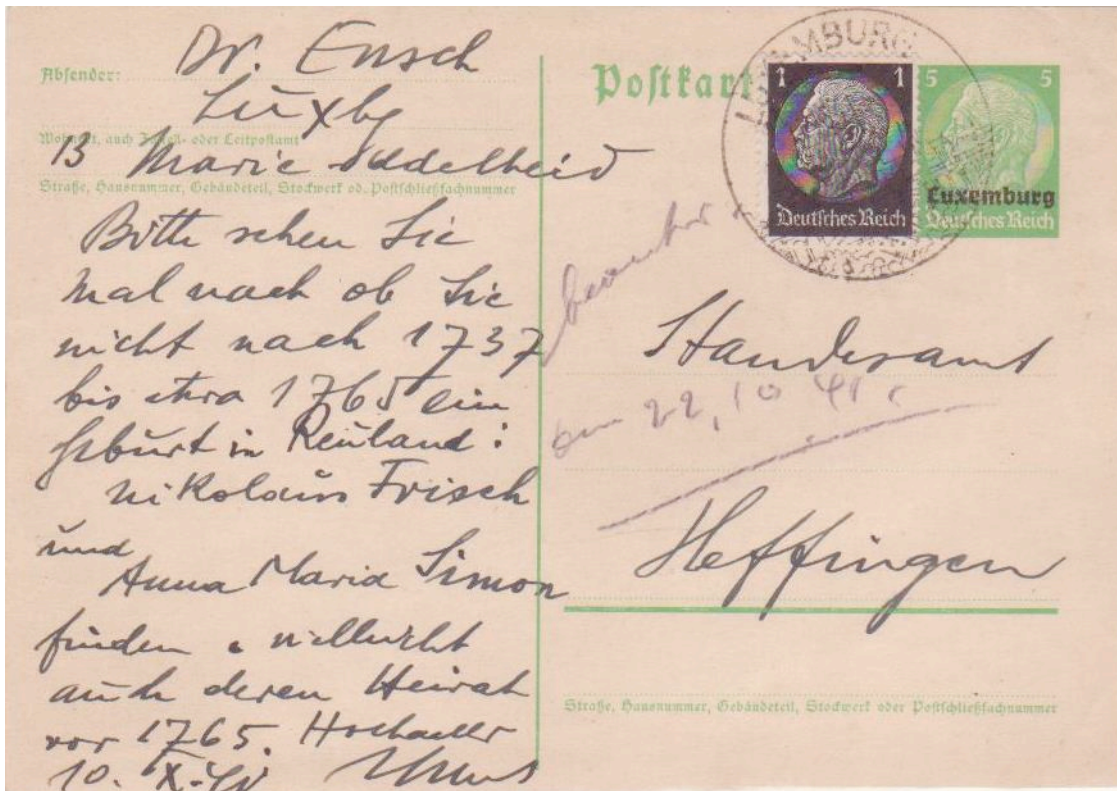 Absender: Dr. Ensch
Luxbg
Wohnort, auch Zustell- oder Leitpostamt
13 Marie Addelheid
Straße, Hausnummer, Gebäudeteil, Stockwerk od. Postschließfachnummer
Bitte sehen Sie
mal nach ob Sie
nicht nach 1737
bis etwa 1765 ein
Geburt in Reuland:
Nikolaus Frisch
und
Anna Maria Simon
finden. vielleicht
auch deren Heirat
vor 1765.
10. X.
Postkarte
LUXEMBURG
1 1
Deutsches Reich
5 5
Luxemburg
Deutsches Reich
Standesamt
am 22,10 41
Heffingen
Straße, Hausnummer, Gebäudeteil, Stockwerk oder Postschließfachnummer